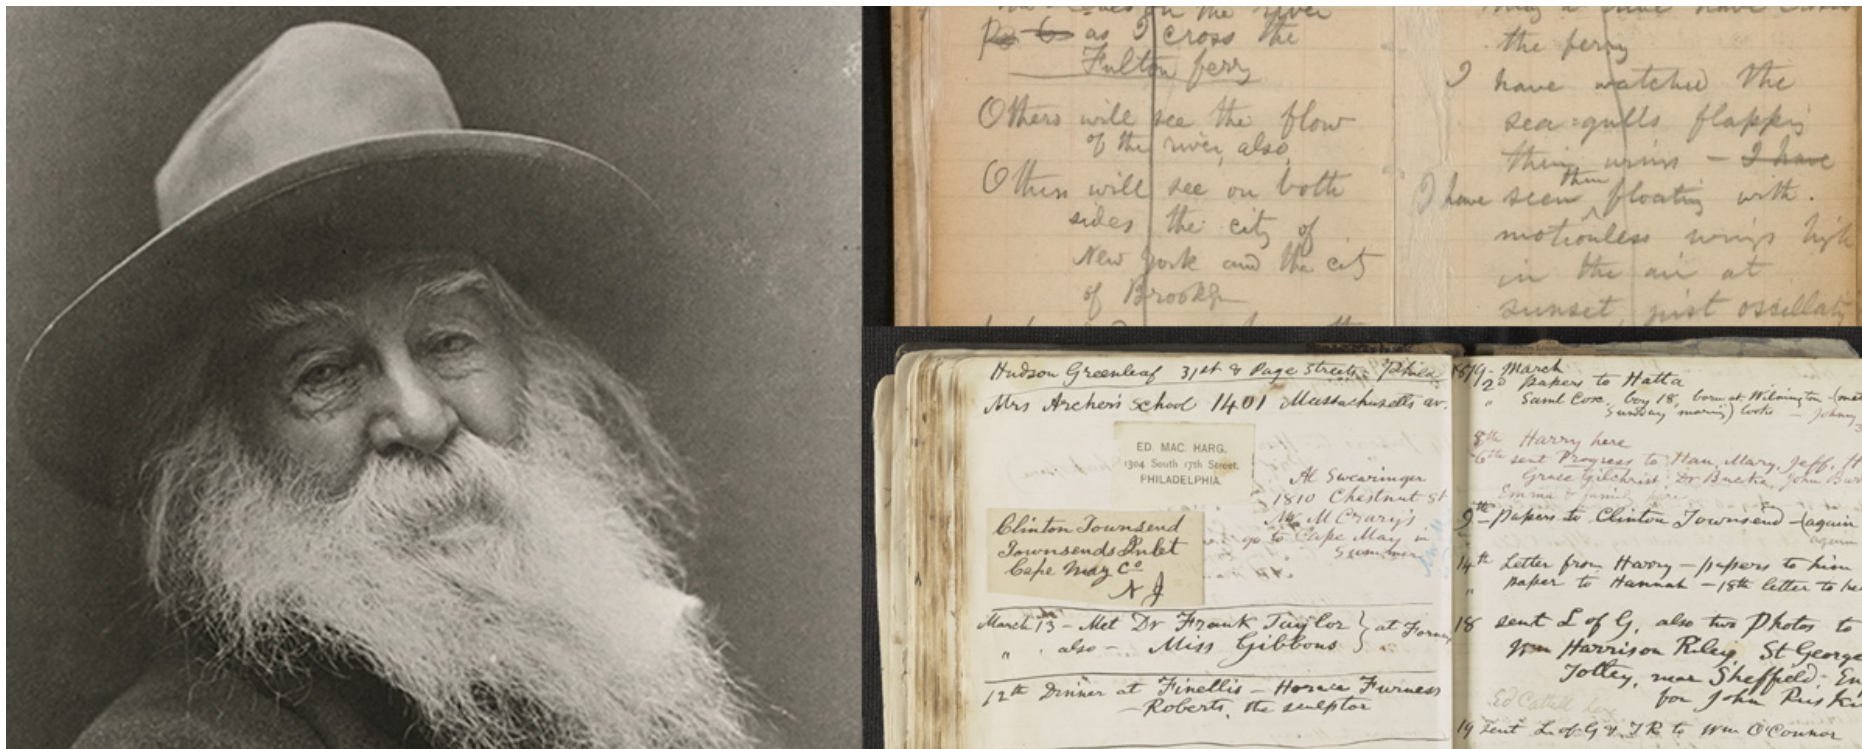 as I cross the
Fulton ferry
Others will see the flow
of the river, also,
Others will see on both
sides the city of
New York and the city
of Brooklyn
the ferry
I have watched the
sea-gulls flapping
their wings — I have
I have seen them floating with
motionless wings high
in the air at
sunset, just oscillati
Hudson Greenleaf 31st & Page Streets Phila
Mrs Archer's School 1401 Massachusetts av.
ED. MAC. HARG.
1304 South 17th Street,
PHILADELPHIA.
Al Swearinger
1810 Chestnut st
Mr M Crary's
go to Cape May in
Summer
Clinton Townsend
Townsends Inlet
Cape May Co
N J
March 13 – Met Dr Frank Taylor } at Forney
" also – Miss Gibbons
12th Dinner at Finellis – Horace Furness
– Roberts, the sculptor
1879 – March
papers to Hatta
" Saml Cox, boy 18, born at Wilmington – (met
Sunday morning) looks – Johnny
8th Harry here
6th sent Progress to Han, Mary, Jeff,
Grace Gilchrist, Dr Bucke, John Bur
Emma & family here
9th – papers to Clinton Townsend – (again
again
14th Letter from Harry – papers to him
" paper to Hannah – 18th letter to her
18 sent L of G, also two Photos to
Harrison Riley, St George
Totley, near Sheffield – En
for John Ruski
Ed Cattell here
19 sent L of G & T R to Wm O'Connor